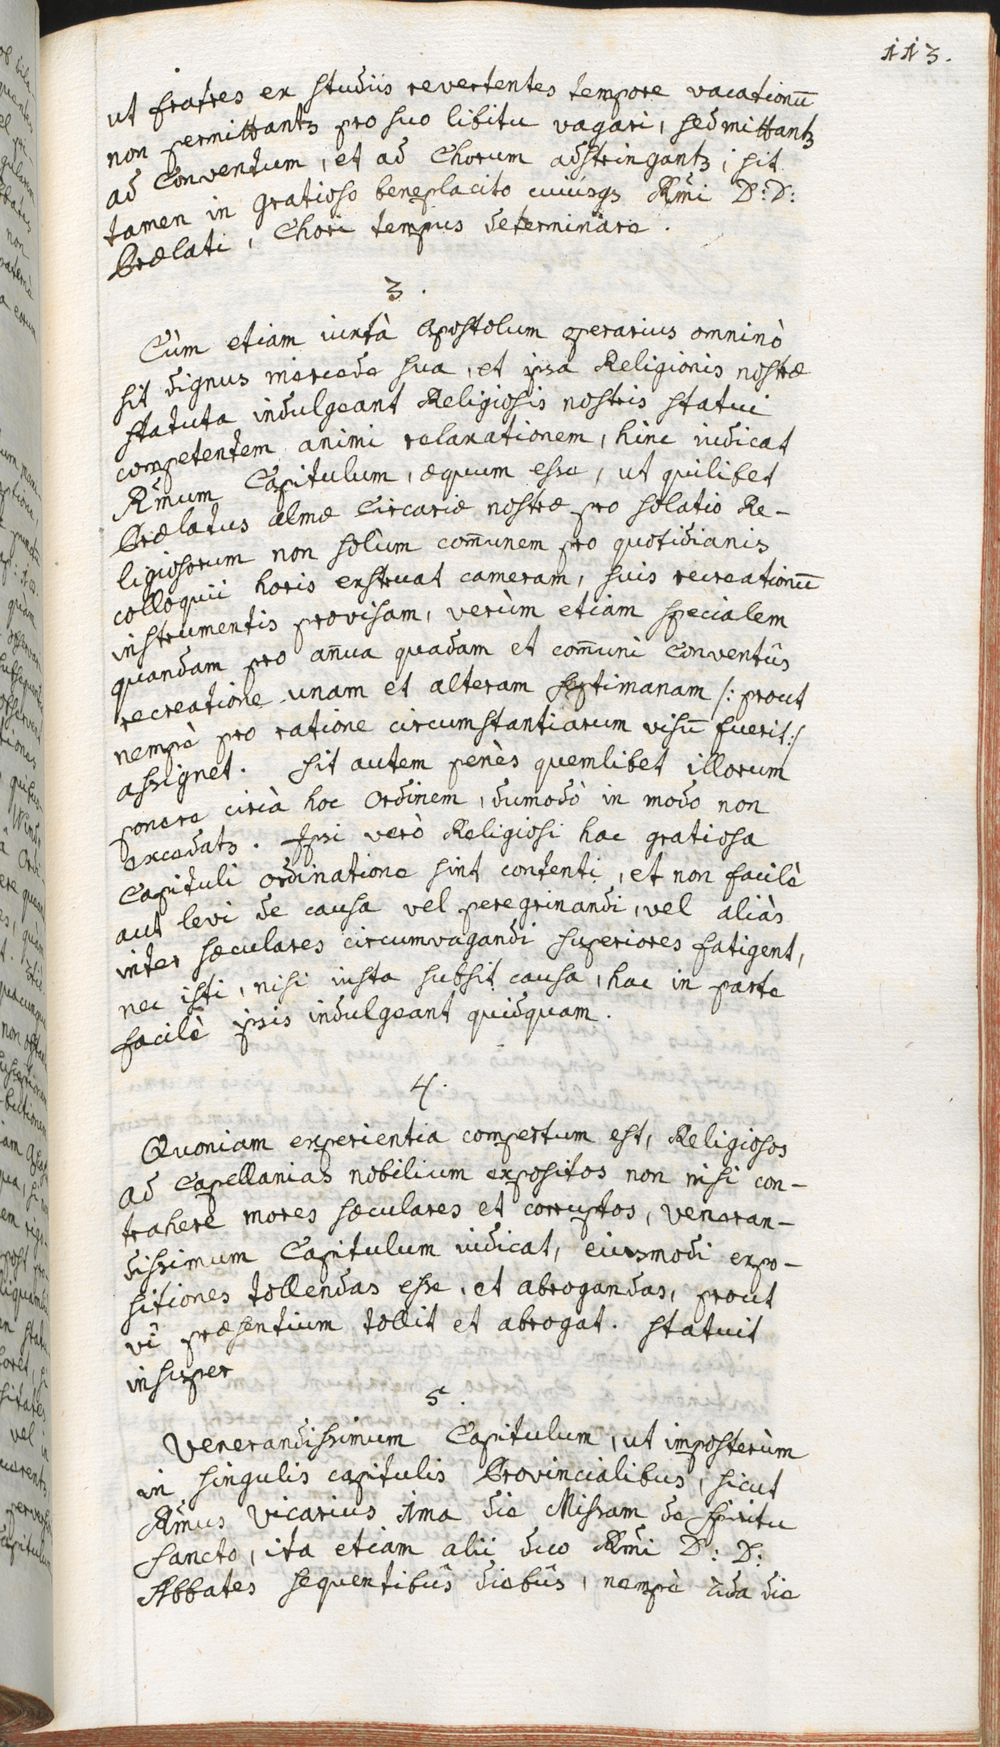 113.
ut fratres ex studiis revertentes tempore vacationū
non permittantɜ pro suo libitu vagari, sed mittantɜ
ad Conventum, et ad Chorum adstringantɜ; sit
tamen in gratioso beneplacito cuiusqɜ Rm̃i D: D:
Prælati, Chori tempus determinare.
3.
Cùm etiam iuxtà Apostolum operarius omninò
sit dignus mercede sua, et ipsa Religionis nostræ
statuta indulgeant Religiosis nostris statui
competentem animi relaxationem, hinc iudicat
Rm̃um Capitulum, æquum esse, ut quilibet
Prælatus almæ Circariæ nostræ pro solatio Re-
ligiosorum non solùm com̃unem pro quotidianis
colloquii horis exstruat cameram, suis recreationū
instrumentis provisam, verùm etiam specialem
quandam pro añua quadam et com̃uni Conventûs
recreatione unam et alteram septimanam /: prout
nempè pro ratione circumstantiarum visū fuerit:/
assignet. Sit autem penès quemlibet illorum
ponere circà hoc Ordinem, dumodò in modo non
excedatɜ. Ipsi verò Religiosi hac gratiosa
Capituli ordinatione sint contenti, et non facilè
aut levi de causa vel peregrinandi, vel aliàs
inter sæculares circumvagandi superiores fatigent,
nec isti, nisi iusta subsit causa, hac in parte
facilè ipsis indulgeant quidquam.
4.
Quoniam experientia compertum est, Religiosos
ad Capellanias nobilium expositos non nisi con-
trahere mores sæculares et corruptos, veneran-
dissimum Capitulum iudicat, eiusmodi expo-
sitiones tollendas esse, et abrogandas, prout
vi præsentium tollit et abrogat. Statuit
insuper
5.
Venerandissimum Capitulum, ut imposterùm
in singulis capitulis Provincialibus, sicut
Rm̃us Vicarius 1ma die Missam de Spiritu
Sancto, ita etiam alii duo Rm̃i D: D:
Abbates sequentibûs diebûs, nempè 2da die